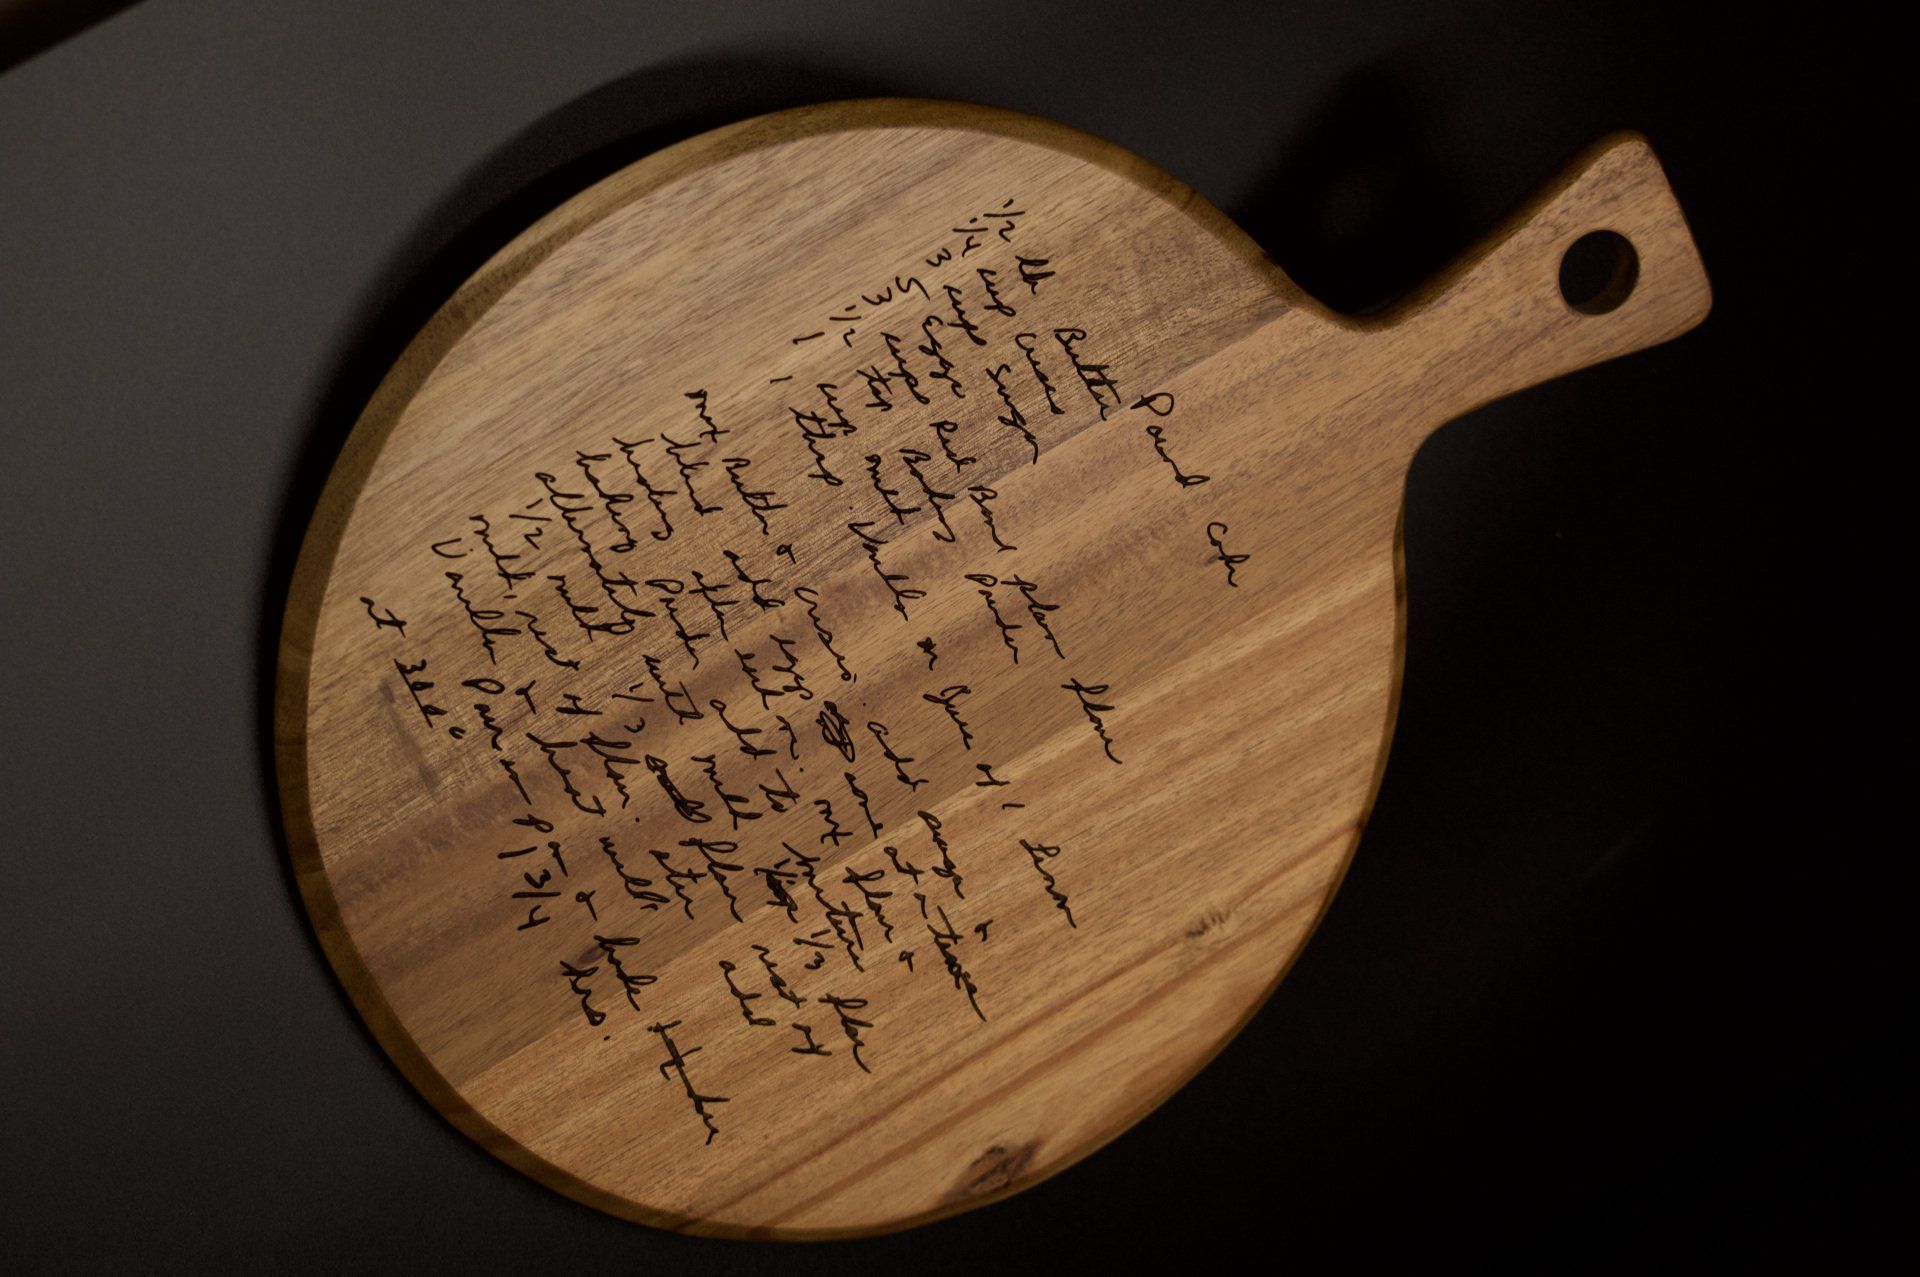 Pound Cake
1/2 lb Butter
1/4 cup Crisco
3 cups Sugar
5 Eggs
3 cups Red Band plain flour
1/2 tsp Baking Powder
1 cup milk
1 tbsp. Vanilla or Juice of 1 Lemon
mix Butter & Crisco. add sugar &
blend add eggs one at a time
beating after each one. mix flour &
baking Powder add to mixture
alternately with milk 1/3 flour
1/2 milk 1/3 flour rest of
milk, rest of flour. after add
Vanilla & beat well.
Pour in pan & bake
at 300° 1 3/4 hrs.